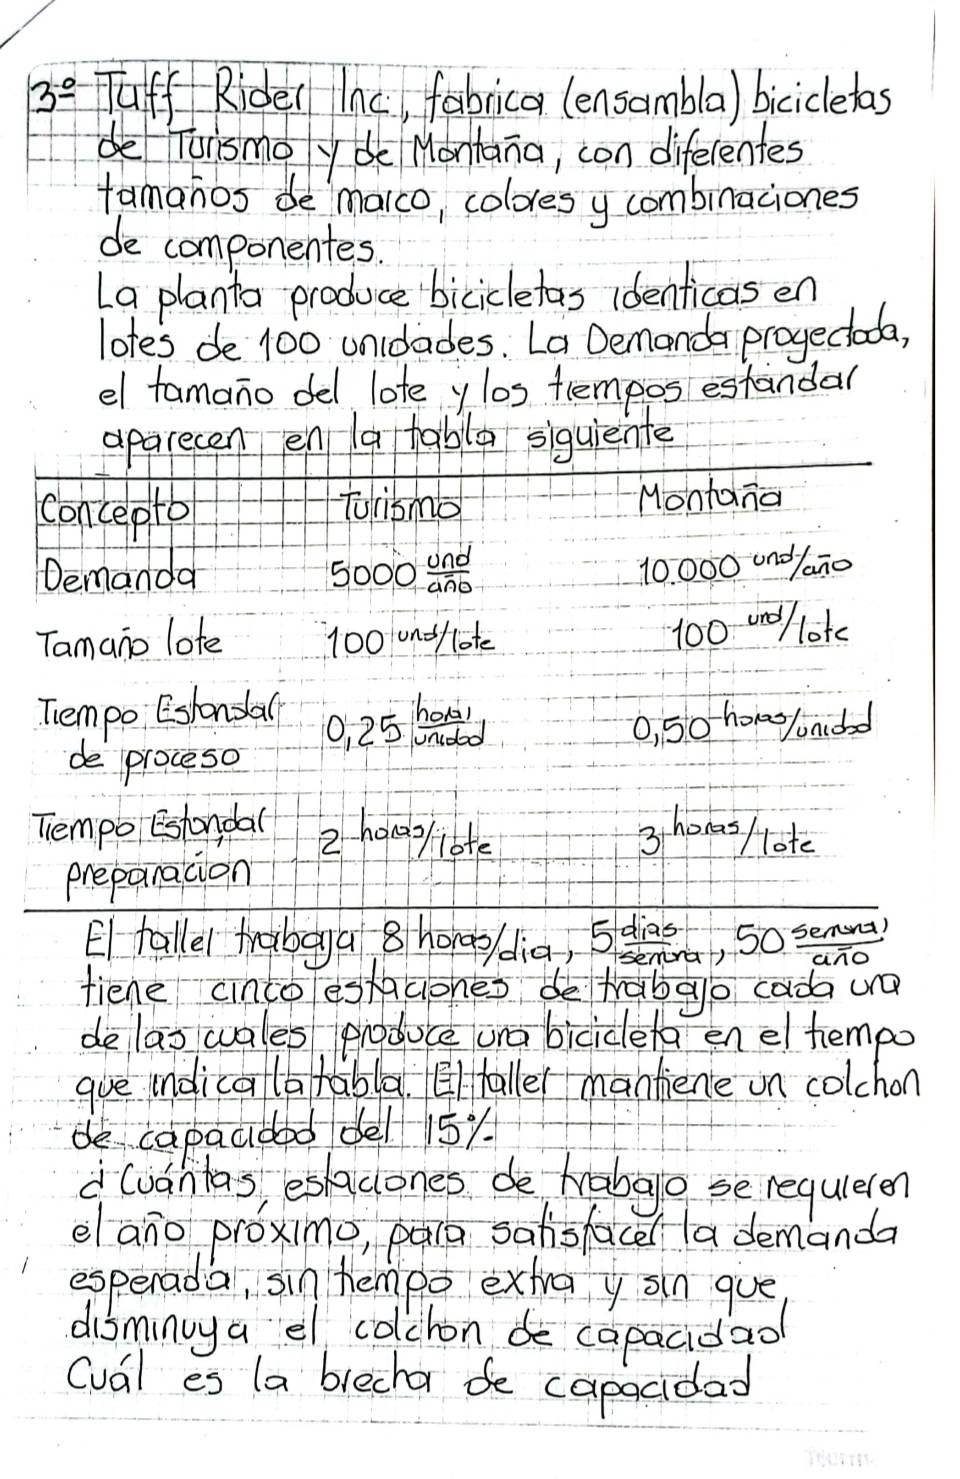 3º Tuff Rider Inc, fabrica (ensambla) bicicletas
de Turismo y de Montaña, con diferentes
tamaños de marco, colores y combinaciones
de componentes.
La planta produce bicicletas identicas en
lotes de 100 unidades. La Demanda proyectada,
el tamaño del lote y los tiempos estándar
aparecen en la tabla siguiente
Concepto Turismo Montaña
Demanda 5000 und/año 10.000 und/año
Tamaño lote 100 und/lote 100 und/lote
Tiempo Estandar de proceso 0,25 horas/unidad 0,50 horas/unidad
Tiempo Estandar preparación 2 horas/lote 3 horas/lote
El taller trabaja 8 horas/dia, 5 dias/semana, 50 semana/año
tiene cinco estaciones de trabajo cada una
de las cuales produce una bicicleta en el tiempo
que indica la tabla. El taller mantiene un colchon
de capacidad del 15%.
¿Cuántas estaciones de trabajo se requieren
el año próximo, para satisfacer la demanda
esperada, sin tiempo extra y sin que
disminuya el colchon de capacidad
Cuál es la brecha de capacidad